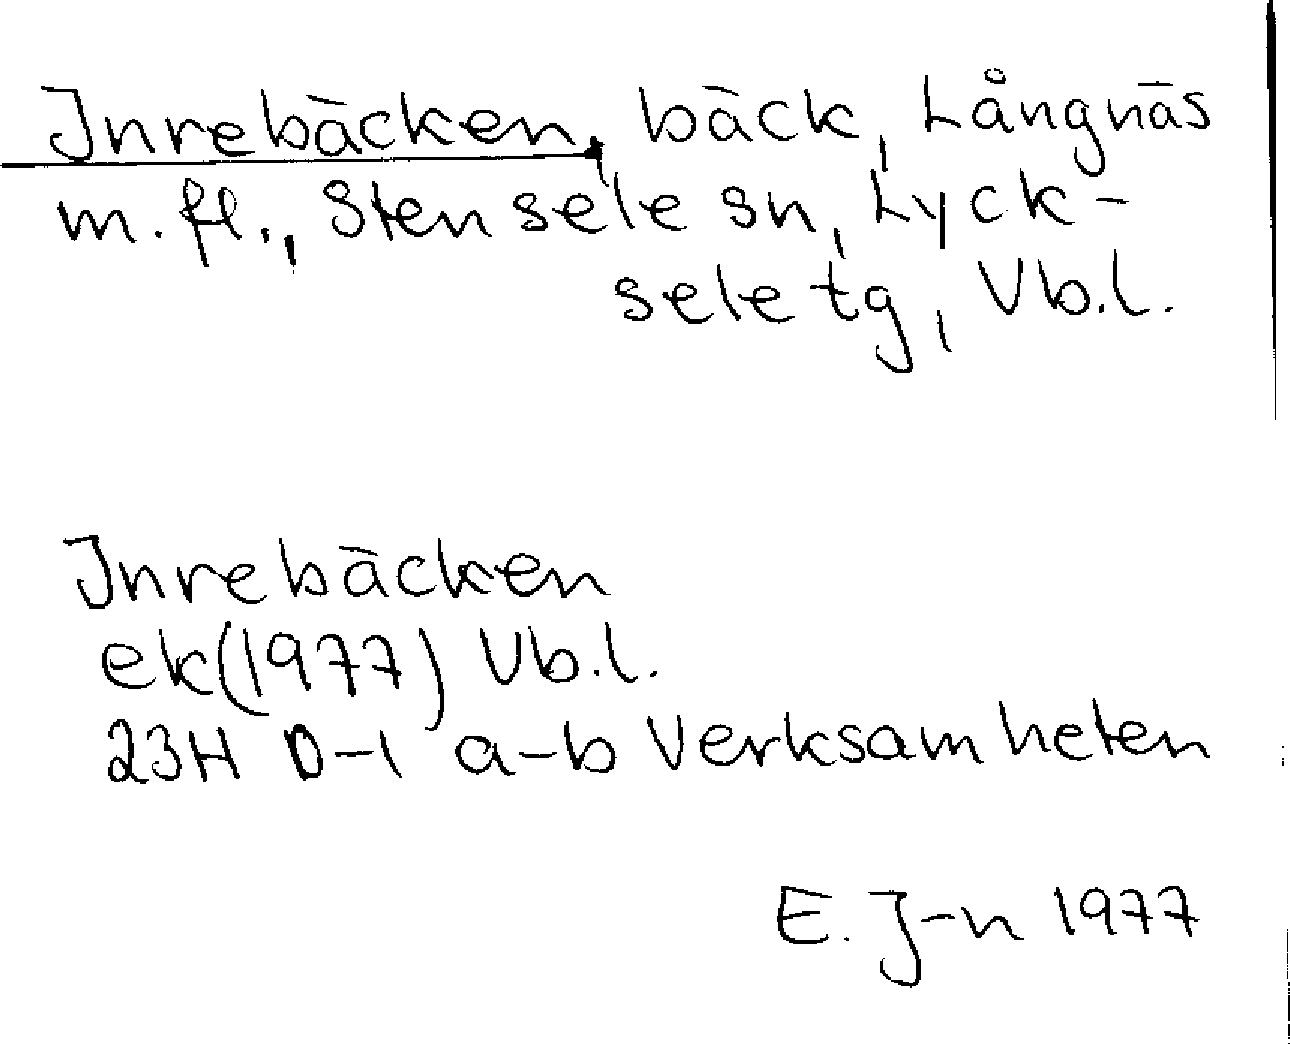 Inrebäcken, bäck, Långnäs
m.fl., Stensele sn, Lyck-
sele tg, Vb.l.
Inrebäcken
ek(1977) Vb.l.
23H 0-1 a-b Verksamheten
E. J-n 1977